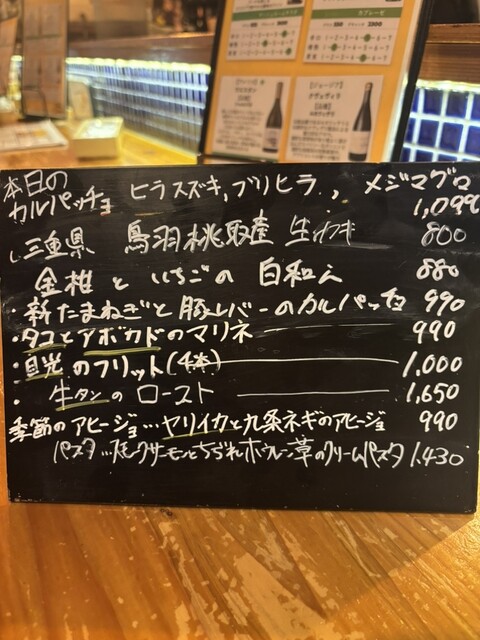 本日の
カルパッチョ ヒラスズキ,ブリヒラ., メジマグロ
1,099
三重県 鳥羽桃取産 生カキ 800
金柑といちごの白和え 880
・新たまねぎと豚レバーのカルパッチョ 990
・タコとアボカドのマリネ 990
・目光のフリット(4本) 1.000
・牛タンのロースト 1,650
季節のアヒージョ…ヤリイカと九条ネギのアヒージョ 990
パスタ…スモークサーモンとちぢれホウレン草のクリームパスタ 1.430